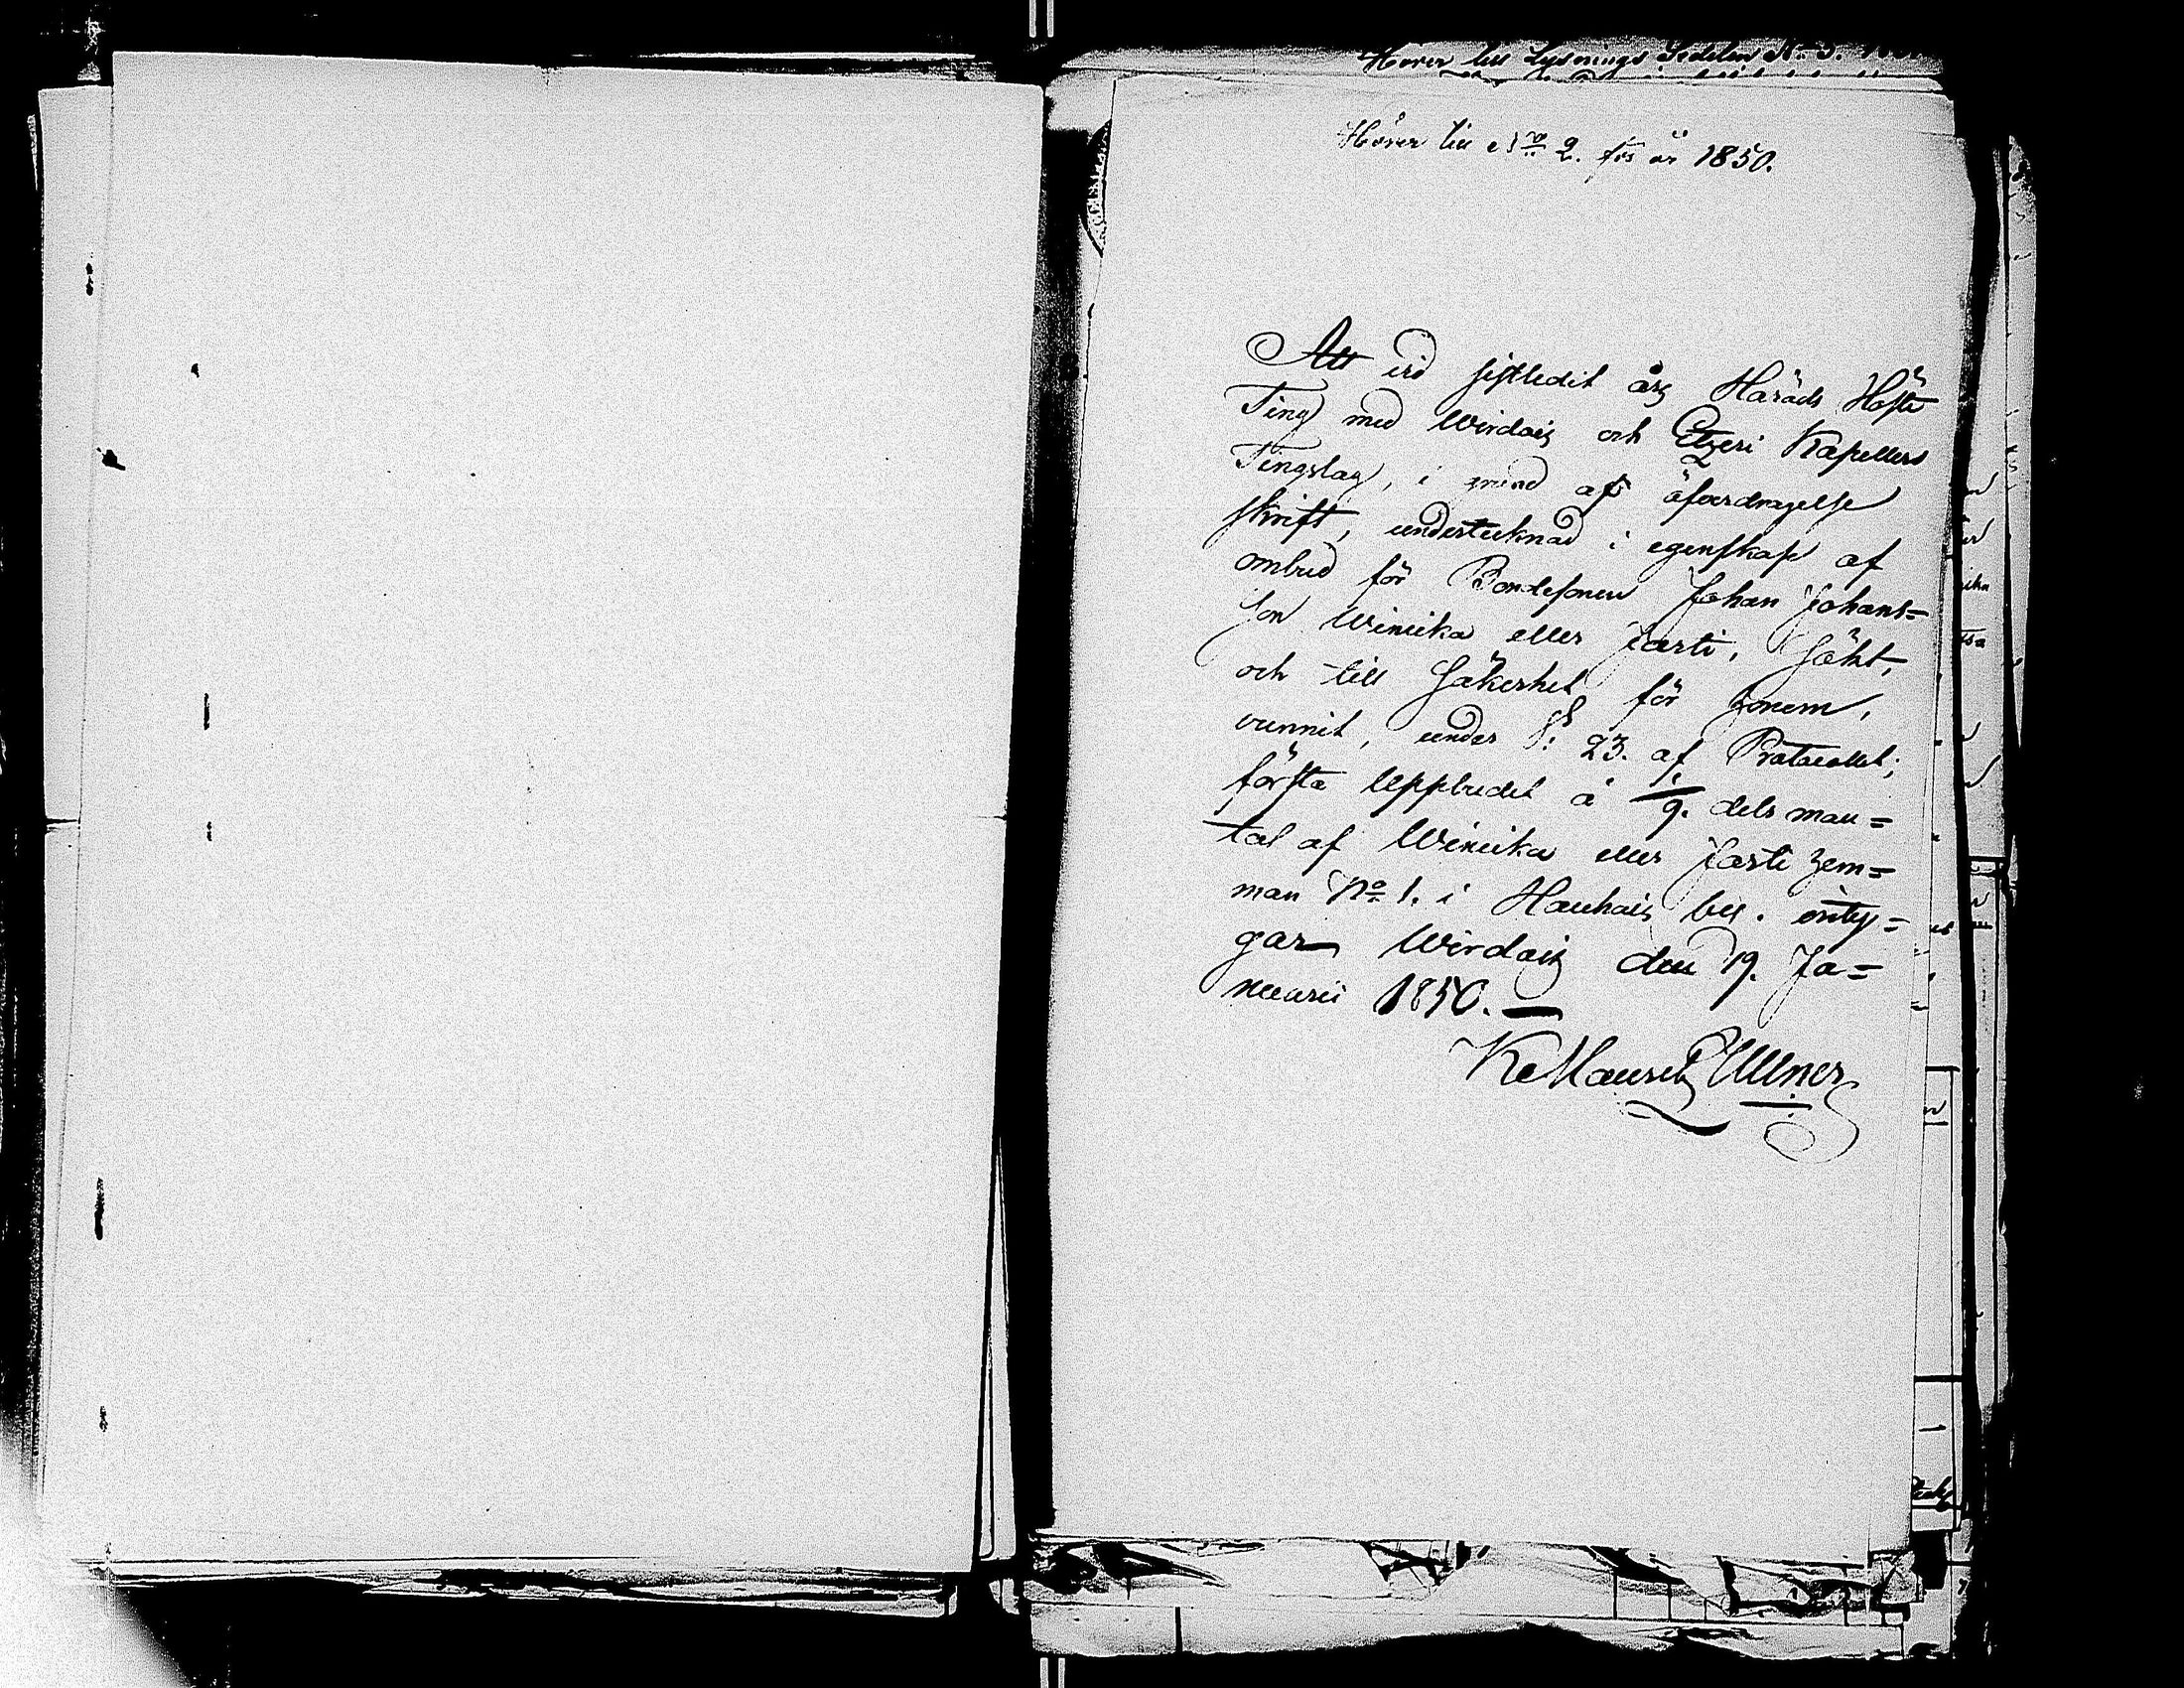 Hörer till Lysnings Sedelen N:o 3.
Hörer till N:o 2. för år 1850.
Att vid sistledit års Härads Höste
Ting med Wirdois och Etzeri Kapellers
Tingslag, i grund af öfverdragelse
skrift, undertecknad i egenskap af
ombud för Bondesonen Johan Johans=
son Winicka eller Jærti, sökt,
och till säkerhet för honom,
vunnit, under §: 23. af Protocollet;
första Uppbudet å 1/9. dels man=
tal af Winicka eller Jærti hem=
man No 1. i Hauhais by. inty=
gar Wirdois den 19. Ja=
nuarii 1850. —